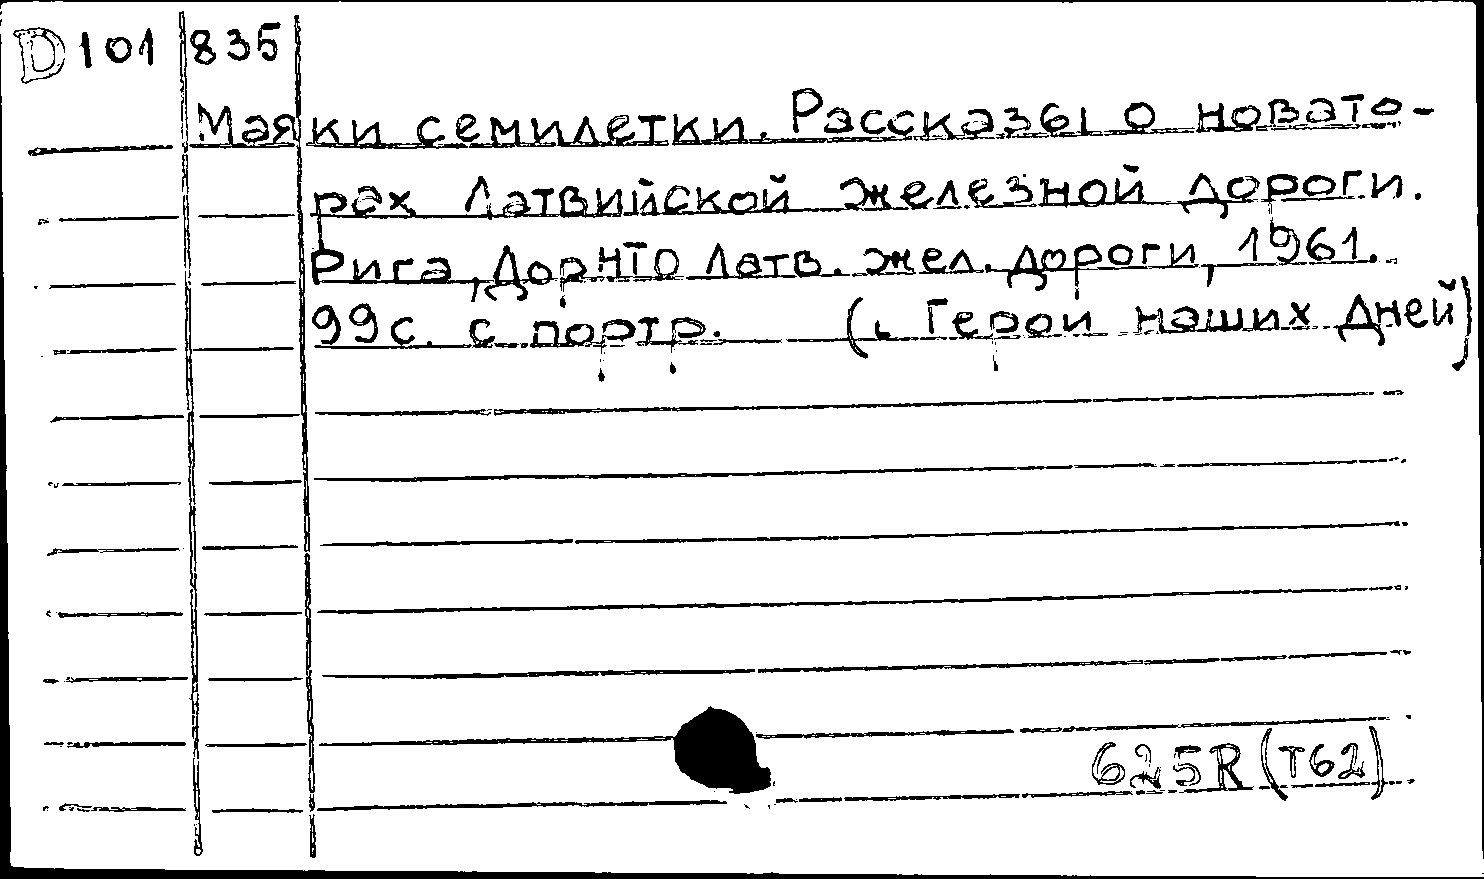 D 101 835
Маяки семилетки. Рассказы о новато-
рах Латвийской железной дороги.
Рига, ДорНТО Латв. жел. дороги, 1961.
99с. с портр. (Герои наших дней)
625R (T62)